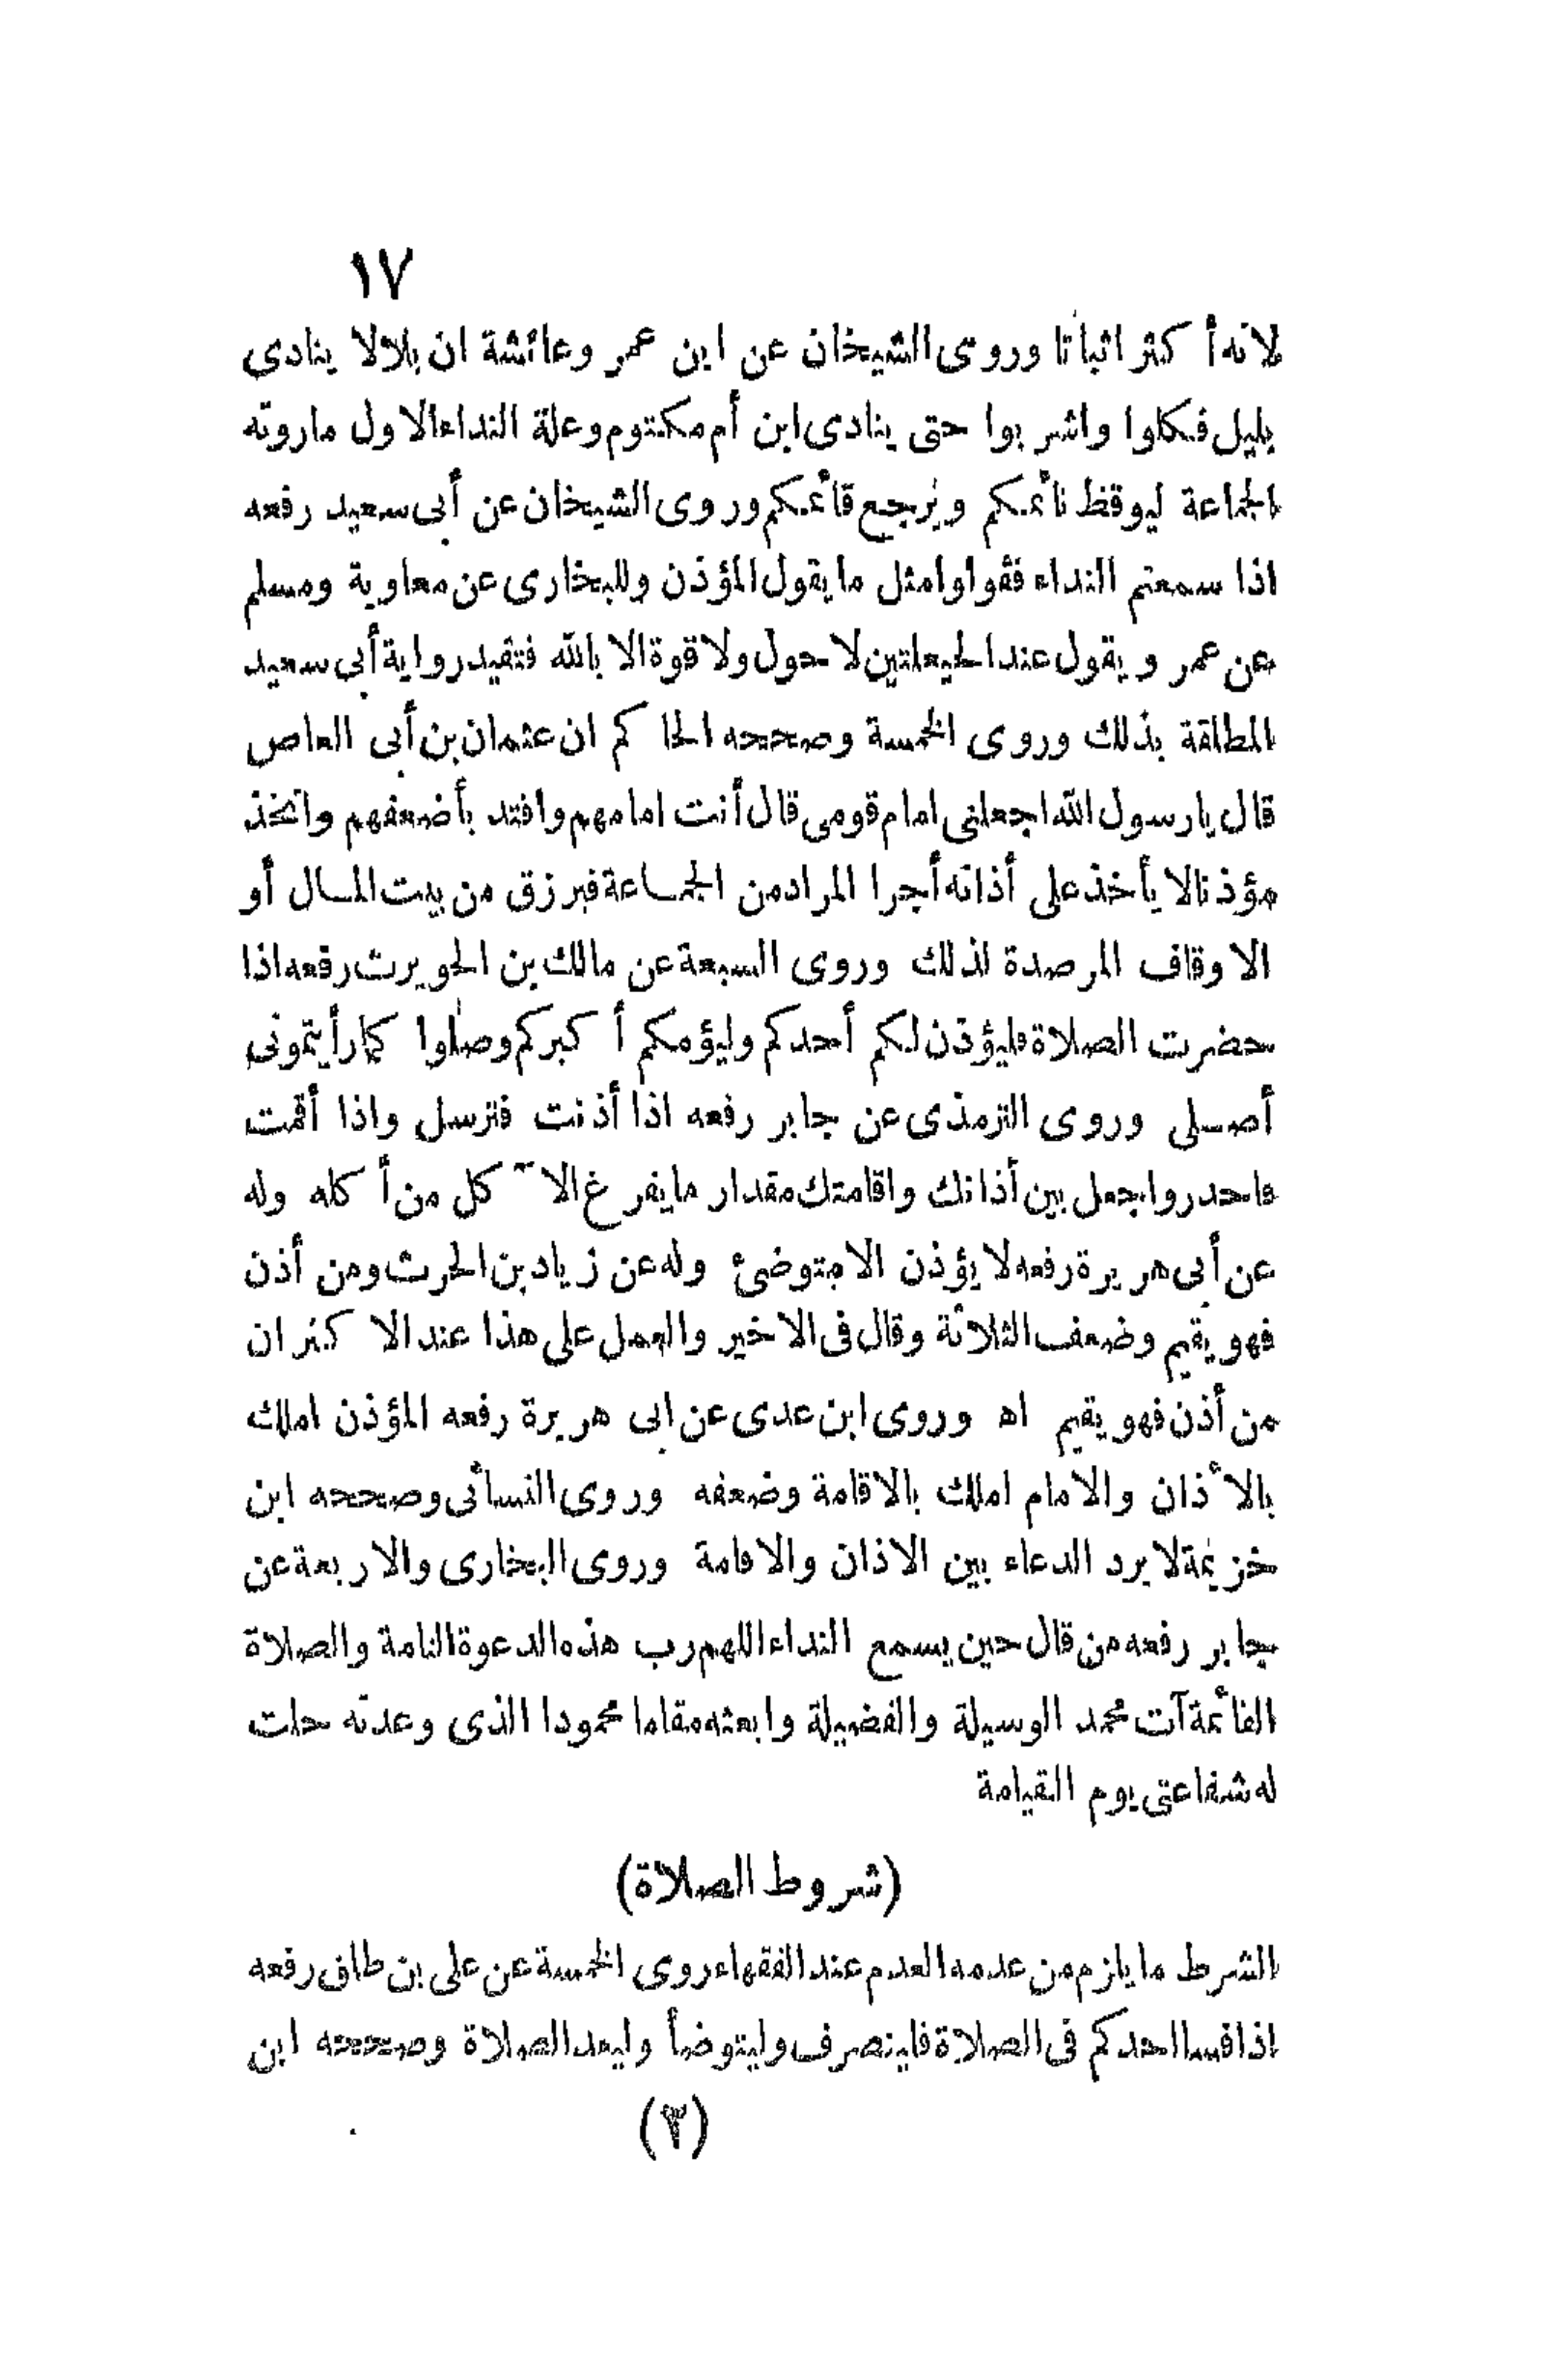 ١٧
لانه أكثر اثباتا وروى الشيخان عن ابن عمر وعائشة ان بلالا ينادى
بليل فكلوا واشربوا حتى ينادى ابن أم مكتوم وعلة النداء الاول ماروته
الجماعة ليوقظ نائمكم ويرجع قائمكم وروى الشيخان عن أبى سعيد رفعه
اذا سمعتم النداء فقولوا مثل مايقول المؤذن وللبخارى عن معاوية ومسلم
عن عمر ويقول عند الحيعلتين لاحول ولا قوة الا بالله فتقيد رواية أبى سعيد
المطلقة بذلك وروى الخمسة وصححه الحاكم ان عثمان بن أبى العاص
قال يارسول الله اجعلنى امام قومى قال أنت امامهم واقتد بأضعفهم واتخذ
مؤذنا لا يأخذ على أذانه أجرا المراد من الجماعة فيرزق من بيت المال أو
الاوقاف المرصدة لذلك وروى السبعة عن مالك بن الحويرث رفعه اذا
حضرت الصلاة فليؤذن لكم أحدكم وليؤمكم أكبركم وصلوا كمارأيتمونى
أصلى وروى الترمذى عن جابر رفعه اذا أذنت فترسل واذا أقمت
فاحدر واجعل بين أذانك واقامتك مقدار مايفرغ الآكل من أكله وله
عن أبى هريرة رفعه لا يؤذن الا متوضئ وله عن زياد بن الحرث ومن أذن
فهو يقيم وضعف الثلاثة وقال فى الاخير والعمل على هذا عند الاكثر ان
من أذن فهو يقيم اه وروى ابن عدى عن ابى هريرة رفعه المؤذن املك
بالأذان والامام املك بالاقامة وضعفه وروى النسائى وصححه ابن
خزيمة لا يرد الدعاء بين الاذان والاقامة وروى البخارى والاربعة عن
جابر رفعه من قال حين يسمع النداء اللهم رب هذه الدعوة التامة والصلاة
القائمة آت محمد الوسيلة والفضيلة وابعثه مقاما محمودا الذى وعدته حلت
له شفاعتى يوم القيامة
(شروط الصلاة)
الشرط مايلزم من عدمه العدم عند الفقهاء روى الخمسة عن على بن طلق رفعه
اذا فسا احدكم فى الصلاة فلينصرف وليتوضأ وليعد الصلاة وصححه ابن
(٣)